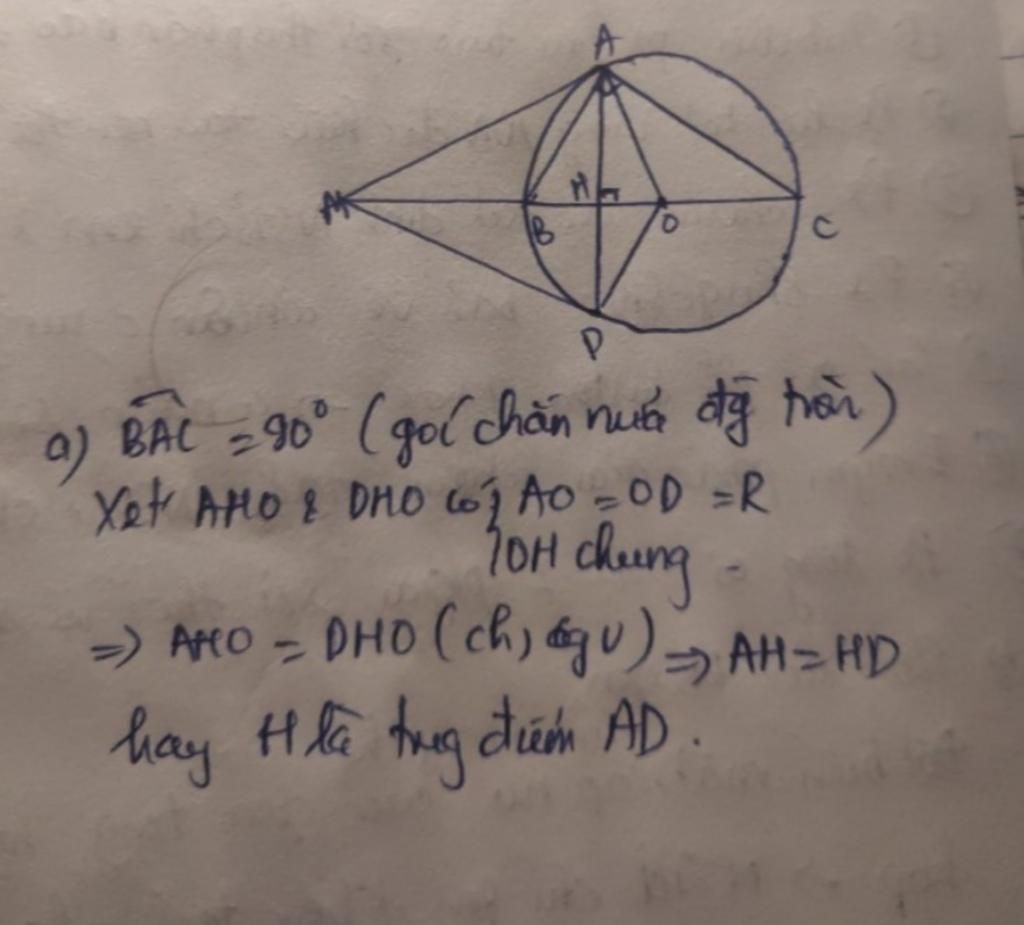 A
M
H
B
O
C
D
a) BAC = 90° (goí chắn nưả đg tròn)
Xét AHO & DHO có { AO = OD = R
OH chung.
=> AHO = DHO (ch, cgv) => AH = HD
hay H là trug điểm AD.